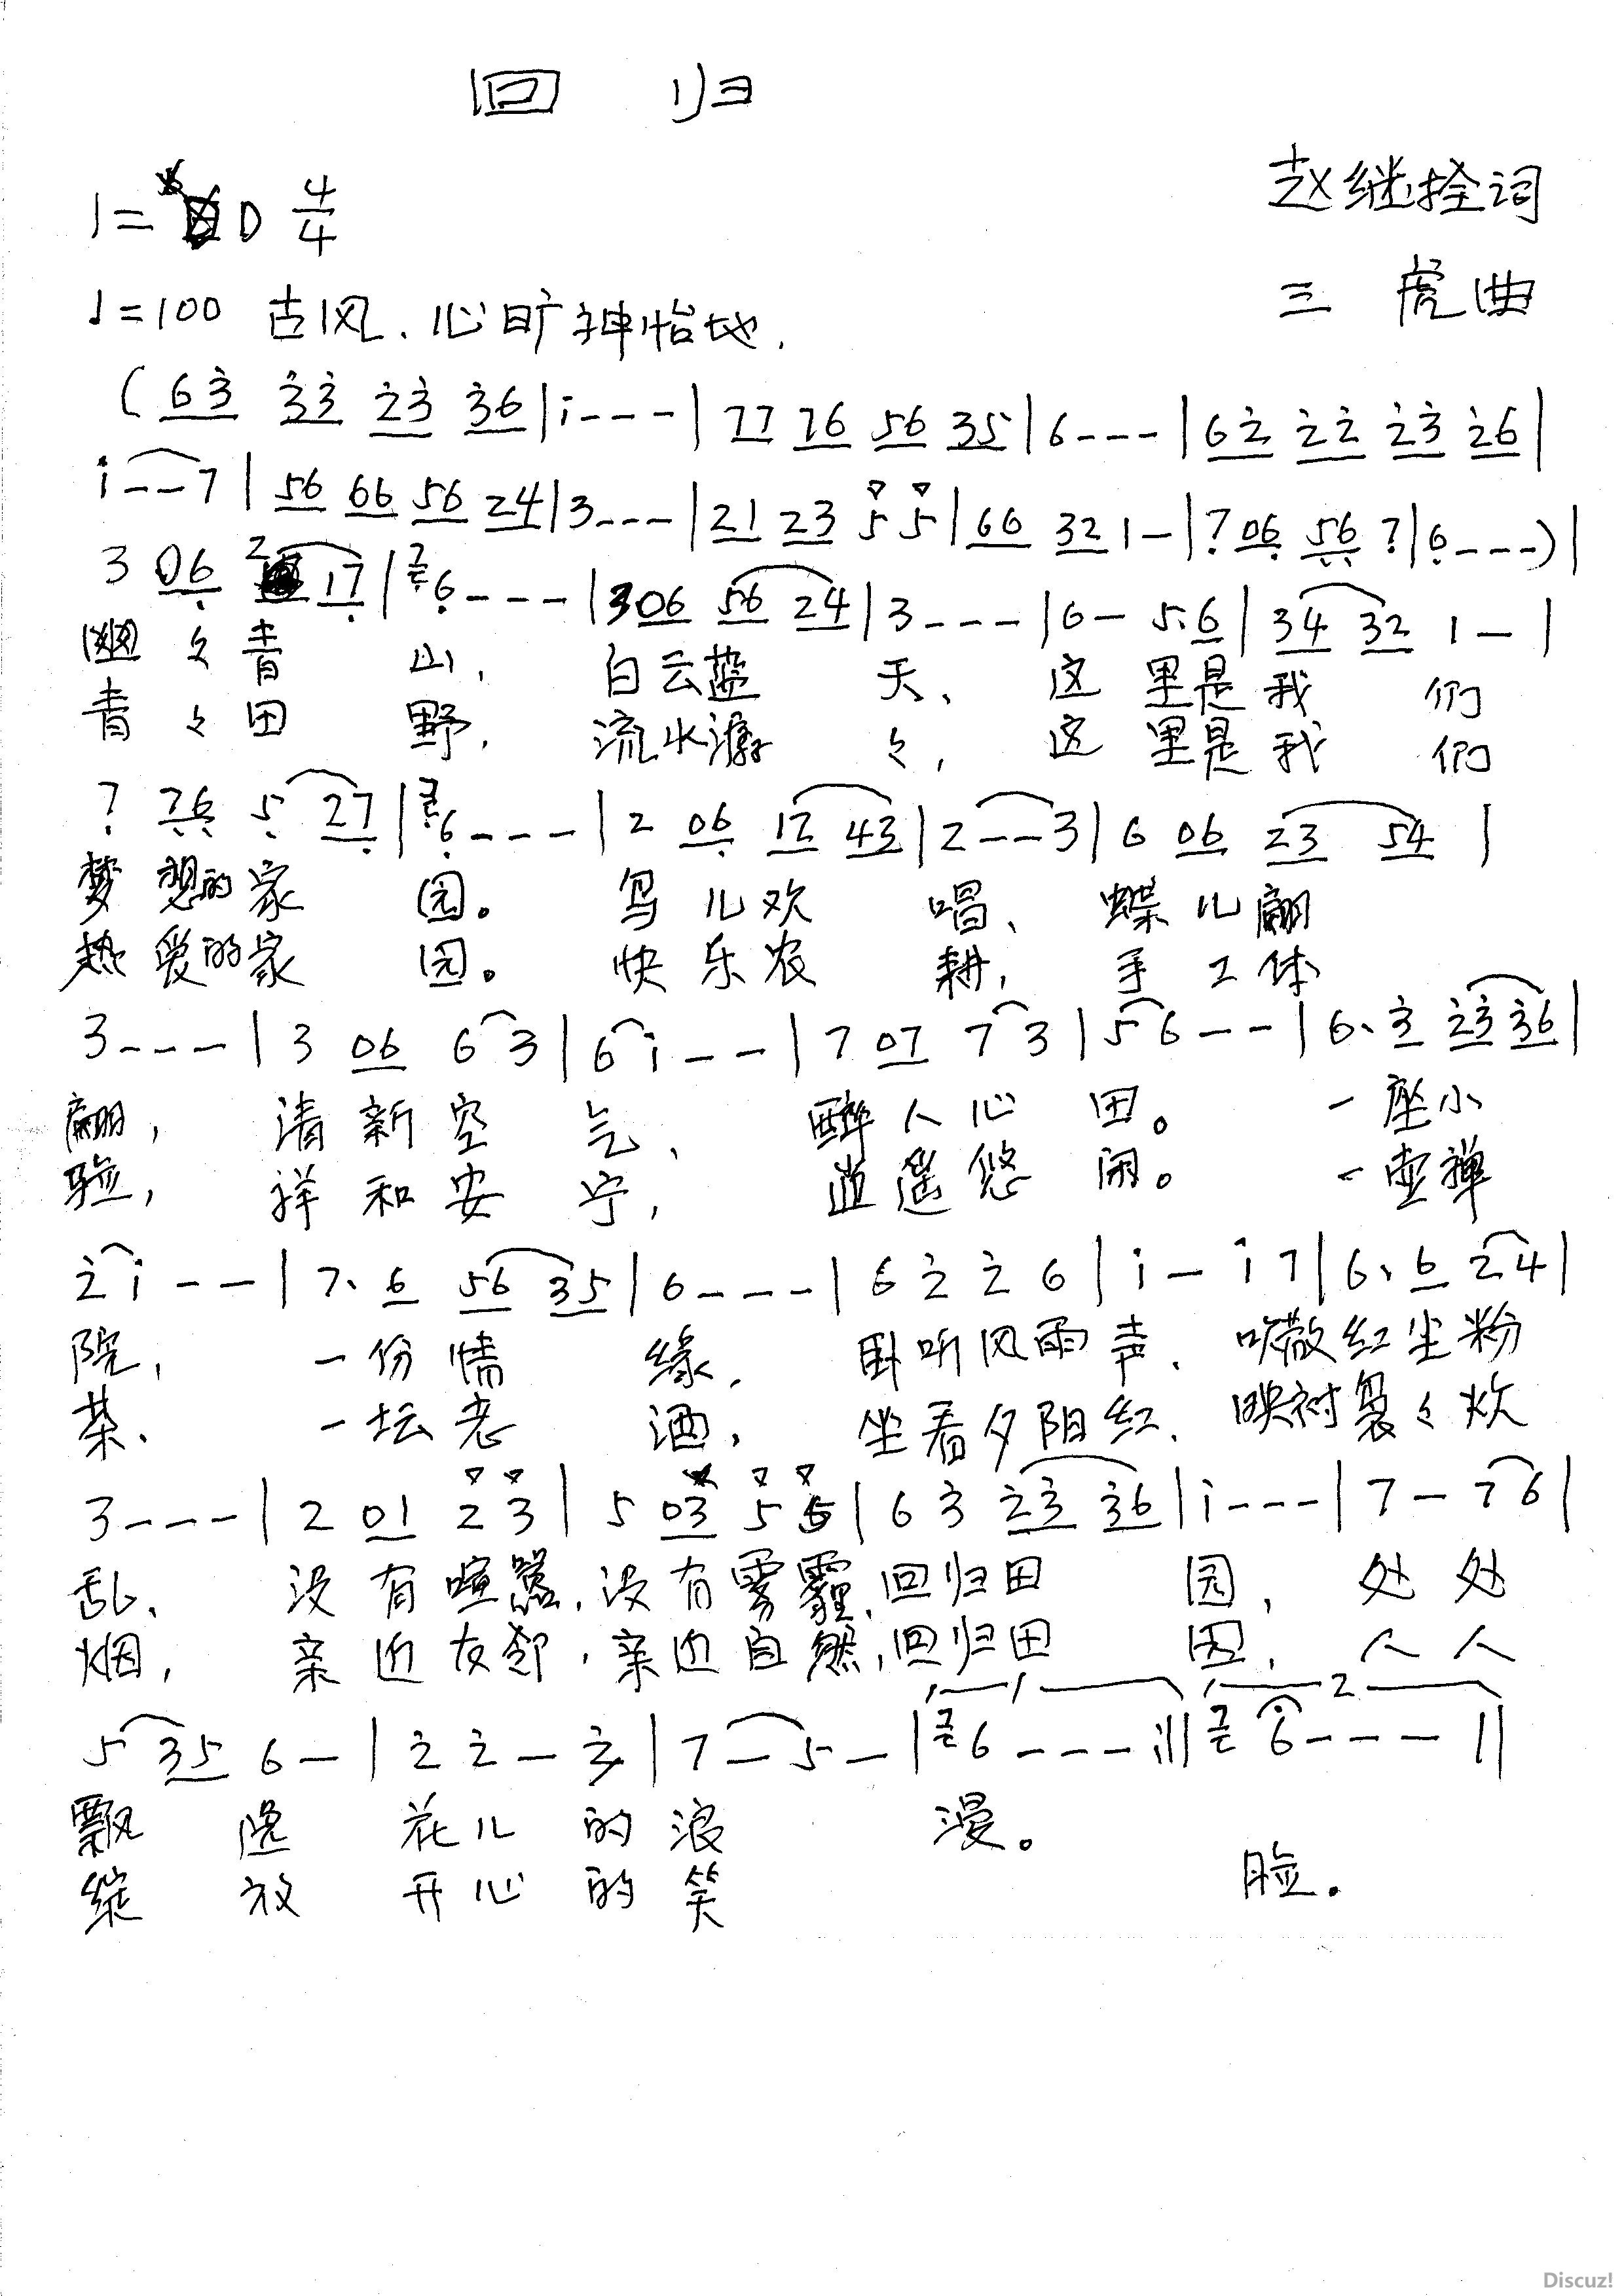 回 归
1=D 4/4
赵继拴词
♩=100 古风、心旷神怡地.
三 虎曲
(63̇ 3̇3̇ 2̇3̇ 3̇6|i---|77 76 56 35|6---|62̇ 2̇2̇ 2̇3̇ 2̇6|
i--7|56 66 56 24|3---|21 23 5 5|66 32 1-|7̣ 06̣ 5̣6̣ 7̣|6̣---)|
3 06̣ 2 17̣|6̣---|306 56 24|3---|6- 5.6|34 32 1-|
幽々青 山, 白云蓝 天、 这 里是我 们
青々田 野, 流水潺 々, 这 里是我 们
7̣ 7̣6̣ 5̣ 27̣|6̣---|2 06̣ 12 43|2--3|6 06 23 54|
梦 想的家 园。 鸟儿欢 唱、 蝶儿翩
热 爱的家 园。 快乐农 耕, 手工体
3---|3 06 6 3|6 i--|7 07 7 3|5 6--|6. 3̇ 2̇3̇ 3̇6|
翩, 清新空 气、 醉人心 田。 一座小
验, 祥和安 宁, 逍遥悠 闲。 一壶禅
2̇ i--|7. 6 56 35|6---|6 2̇ 2̇ 6|i - i 7|6. 6 2 4|
院, 一份情 缘, 卧听风雨声、 吹散红尘粉
茶、 一坛老 酒, 坐看夕阳红、 映衬袅々炊
3---|2 01 2 3|5 03 5 5|6 3̇ 2̇3̇ 3̇6|i---|7 - 7 6|
乱、 没有喧嚣、没有雾霾,回归田 园, 处处
烟, 亲近友邻,亲近自然,回归田 园, 人人
1 2
5 35 6-|2̇ 2̇ - 3̇|7-5-|6---:|| 6---||
飘逸 花儿的浪 漫。
绽放 开心的笑 脸.
Discuz!